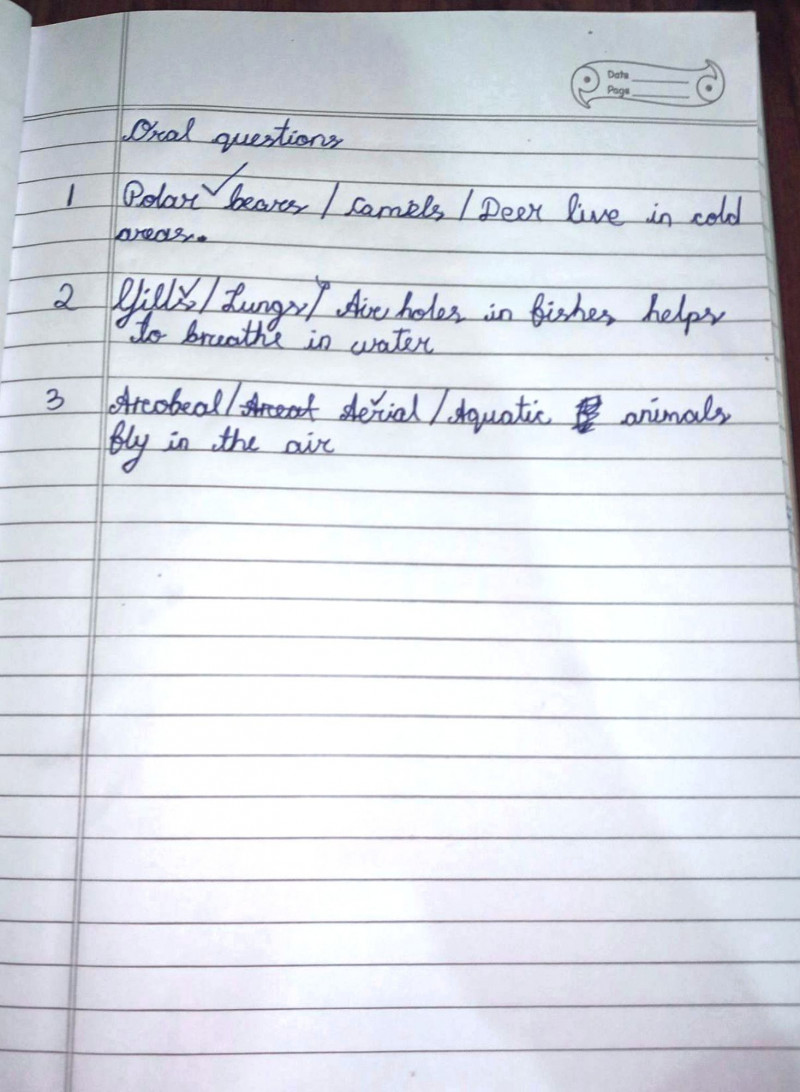 Date
Page
Oral questions
1 Polar bears / Camels / Deer live in cold
areas.
2 Gills / Lungs / Air holes in fishes helps
to breathe in water
3 Arcobeal / Areat Aerial / Aquatic animals
fly in the air